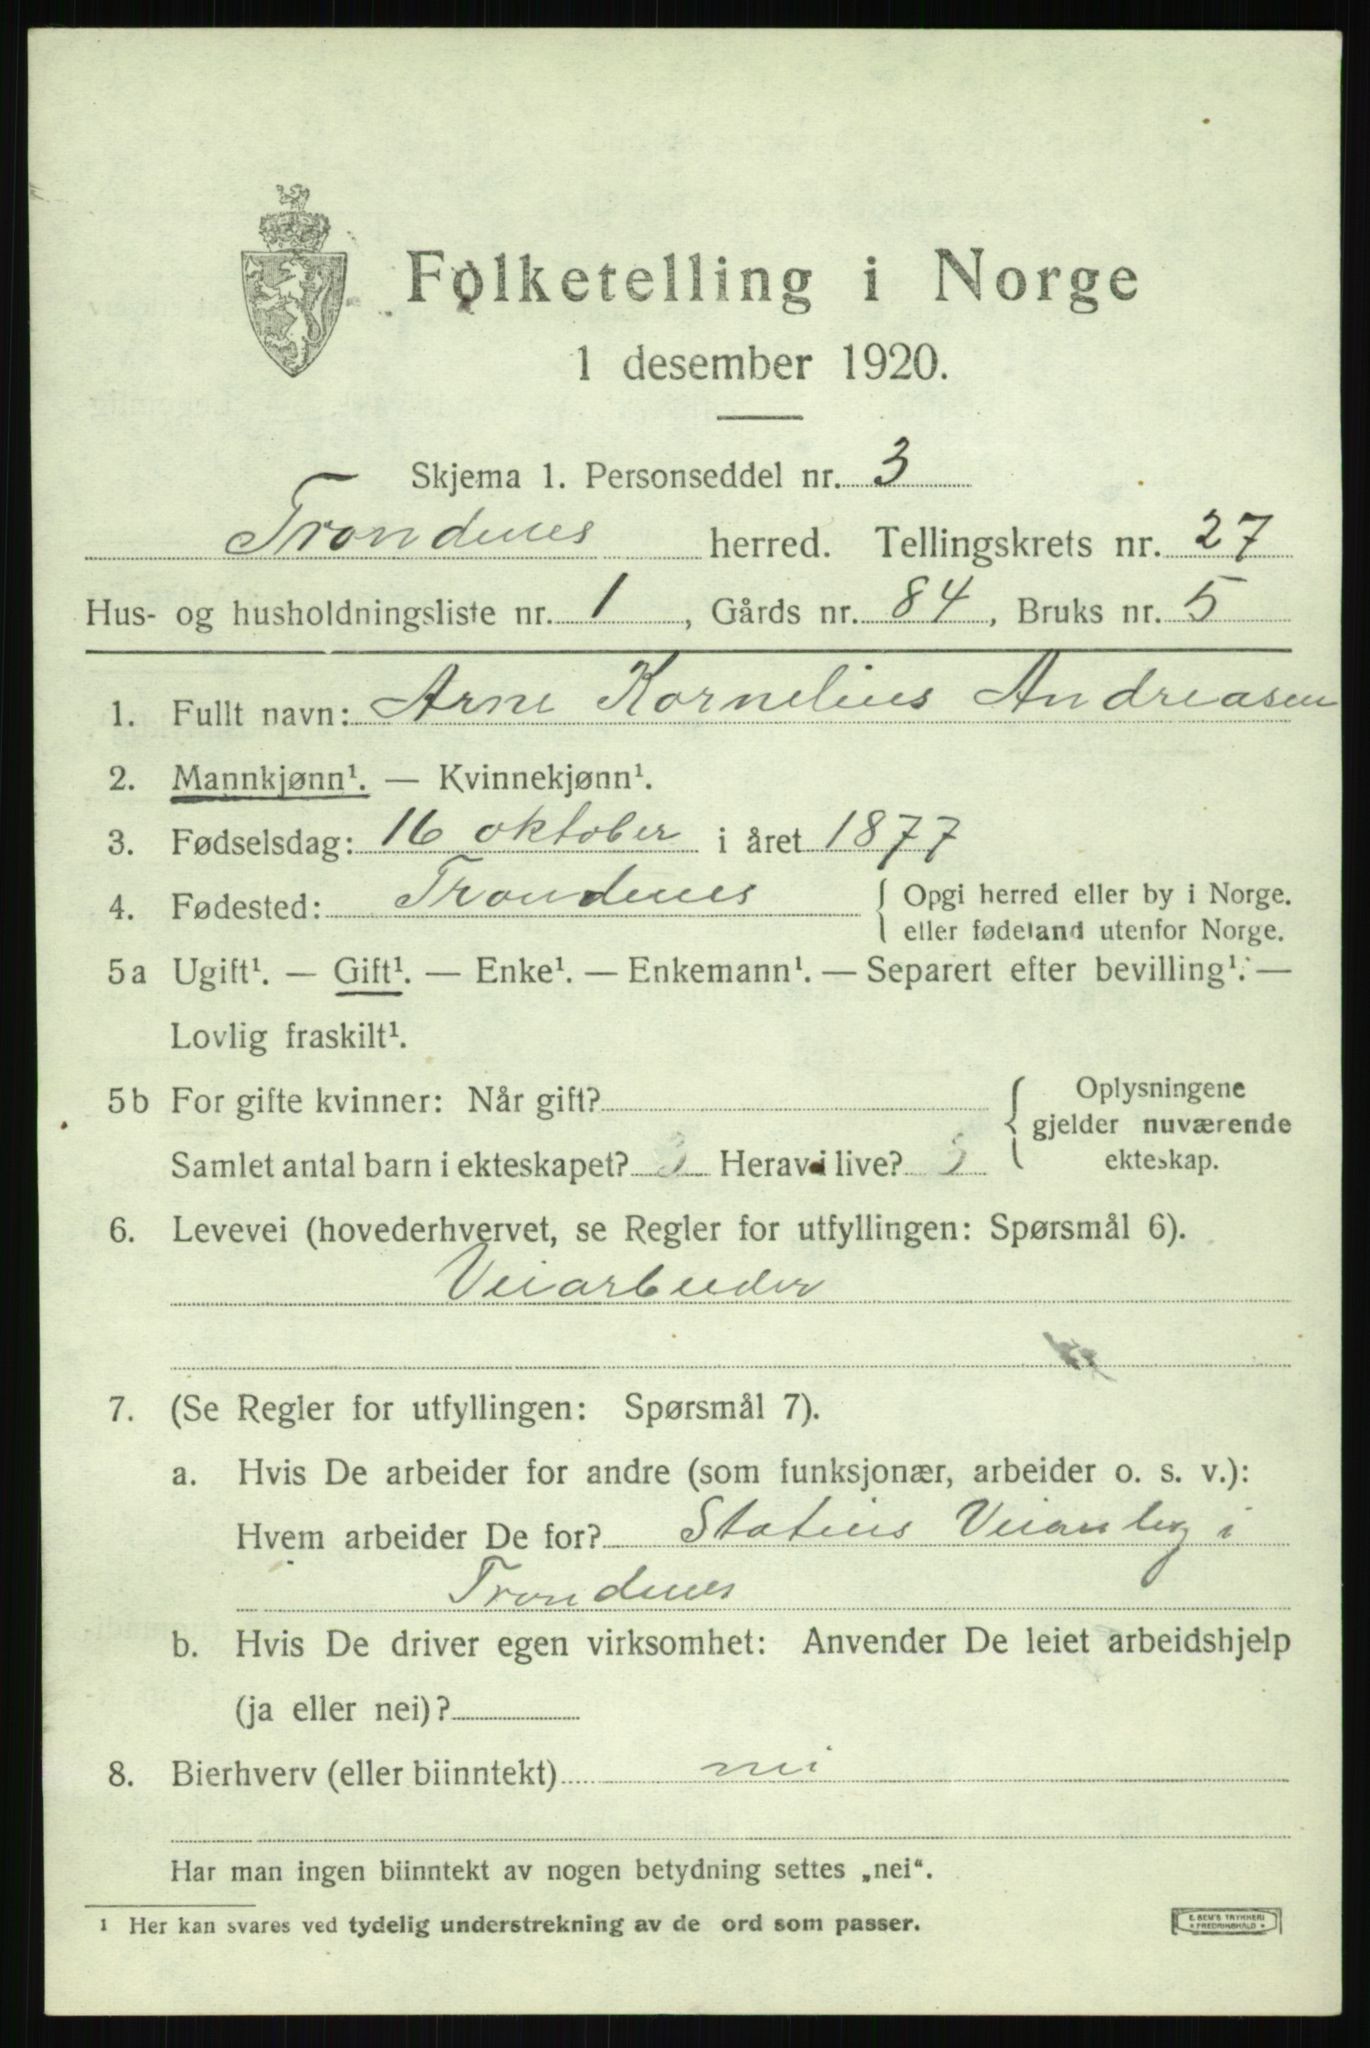 Folketelling i Norge
1 desember 1920.
Skjema 1. Personseddel nr. 3
Trondenes herred. Tellingskrets nr. 27
Hus- og husholdningsliste nr. 1, Gårds nr. 84, Bruks nr. 5
1. Fullt navn: Arne Kornelius Andreasen
2. Mannkjønn¹. — Kvinnekjønn¹.
3. Fødselsdag: 16 oktober i året 1877
4. Fødested: Trondenes { Opgi herred eller by i Norge.
eller fødeland utenfor Norge.
5a Ugift¹. — Gift¹. — Enke¹. — Enkemann¹. — Separert efter bevilling¹. —
Lovlig fraskilt¹.
5b For gifte kvinner: Når gift? { Oplysningene
gjelder nuværende
Samlet antal barn i ekteskapet? 3 Herav i live? 3 ekteskap.
6. Levevei (hovederhvervet, se Regler for utfyllingen: Spørsmål 6).
Veiarbeider
7. (Se Regler for utfyllingen: Spørsmål 7).
a. Hvis De arbeider for andre (som funksjonær, arbeider o. s. v.):
Hvem arbeider De for? Statens Veianleg i
Trondenes
b. Hvis De driver egen virksomhet: Anvender De leiet arbeidshjelp
(ja eller nei)?
8. Bierhverv (eller biinntekt) nei
Har man ingen biinntekt av nogen betydning settes „nei“.
1 Her kan svares ved tydelig understrekning av de ord som passer.
E. SEM'S TRYKKERI
* FREDRIKSHALD *